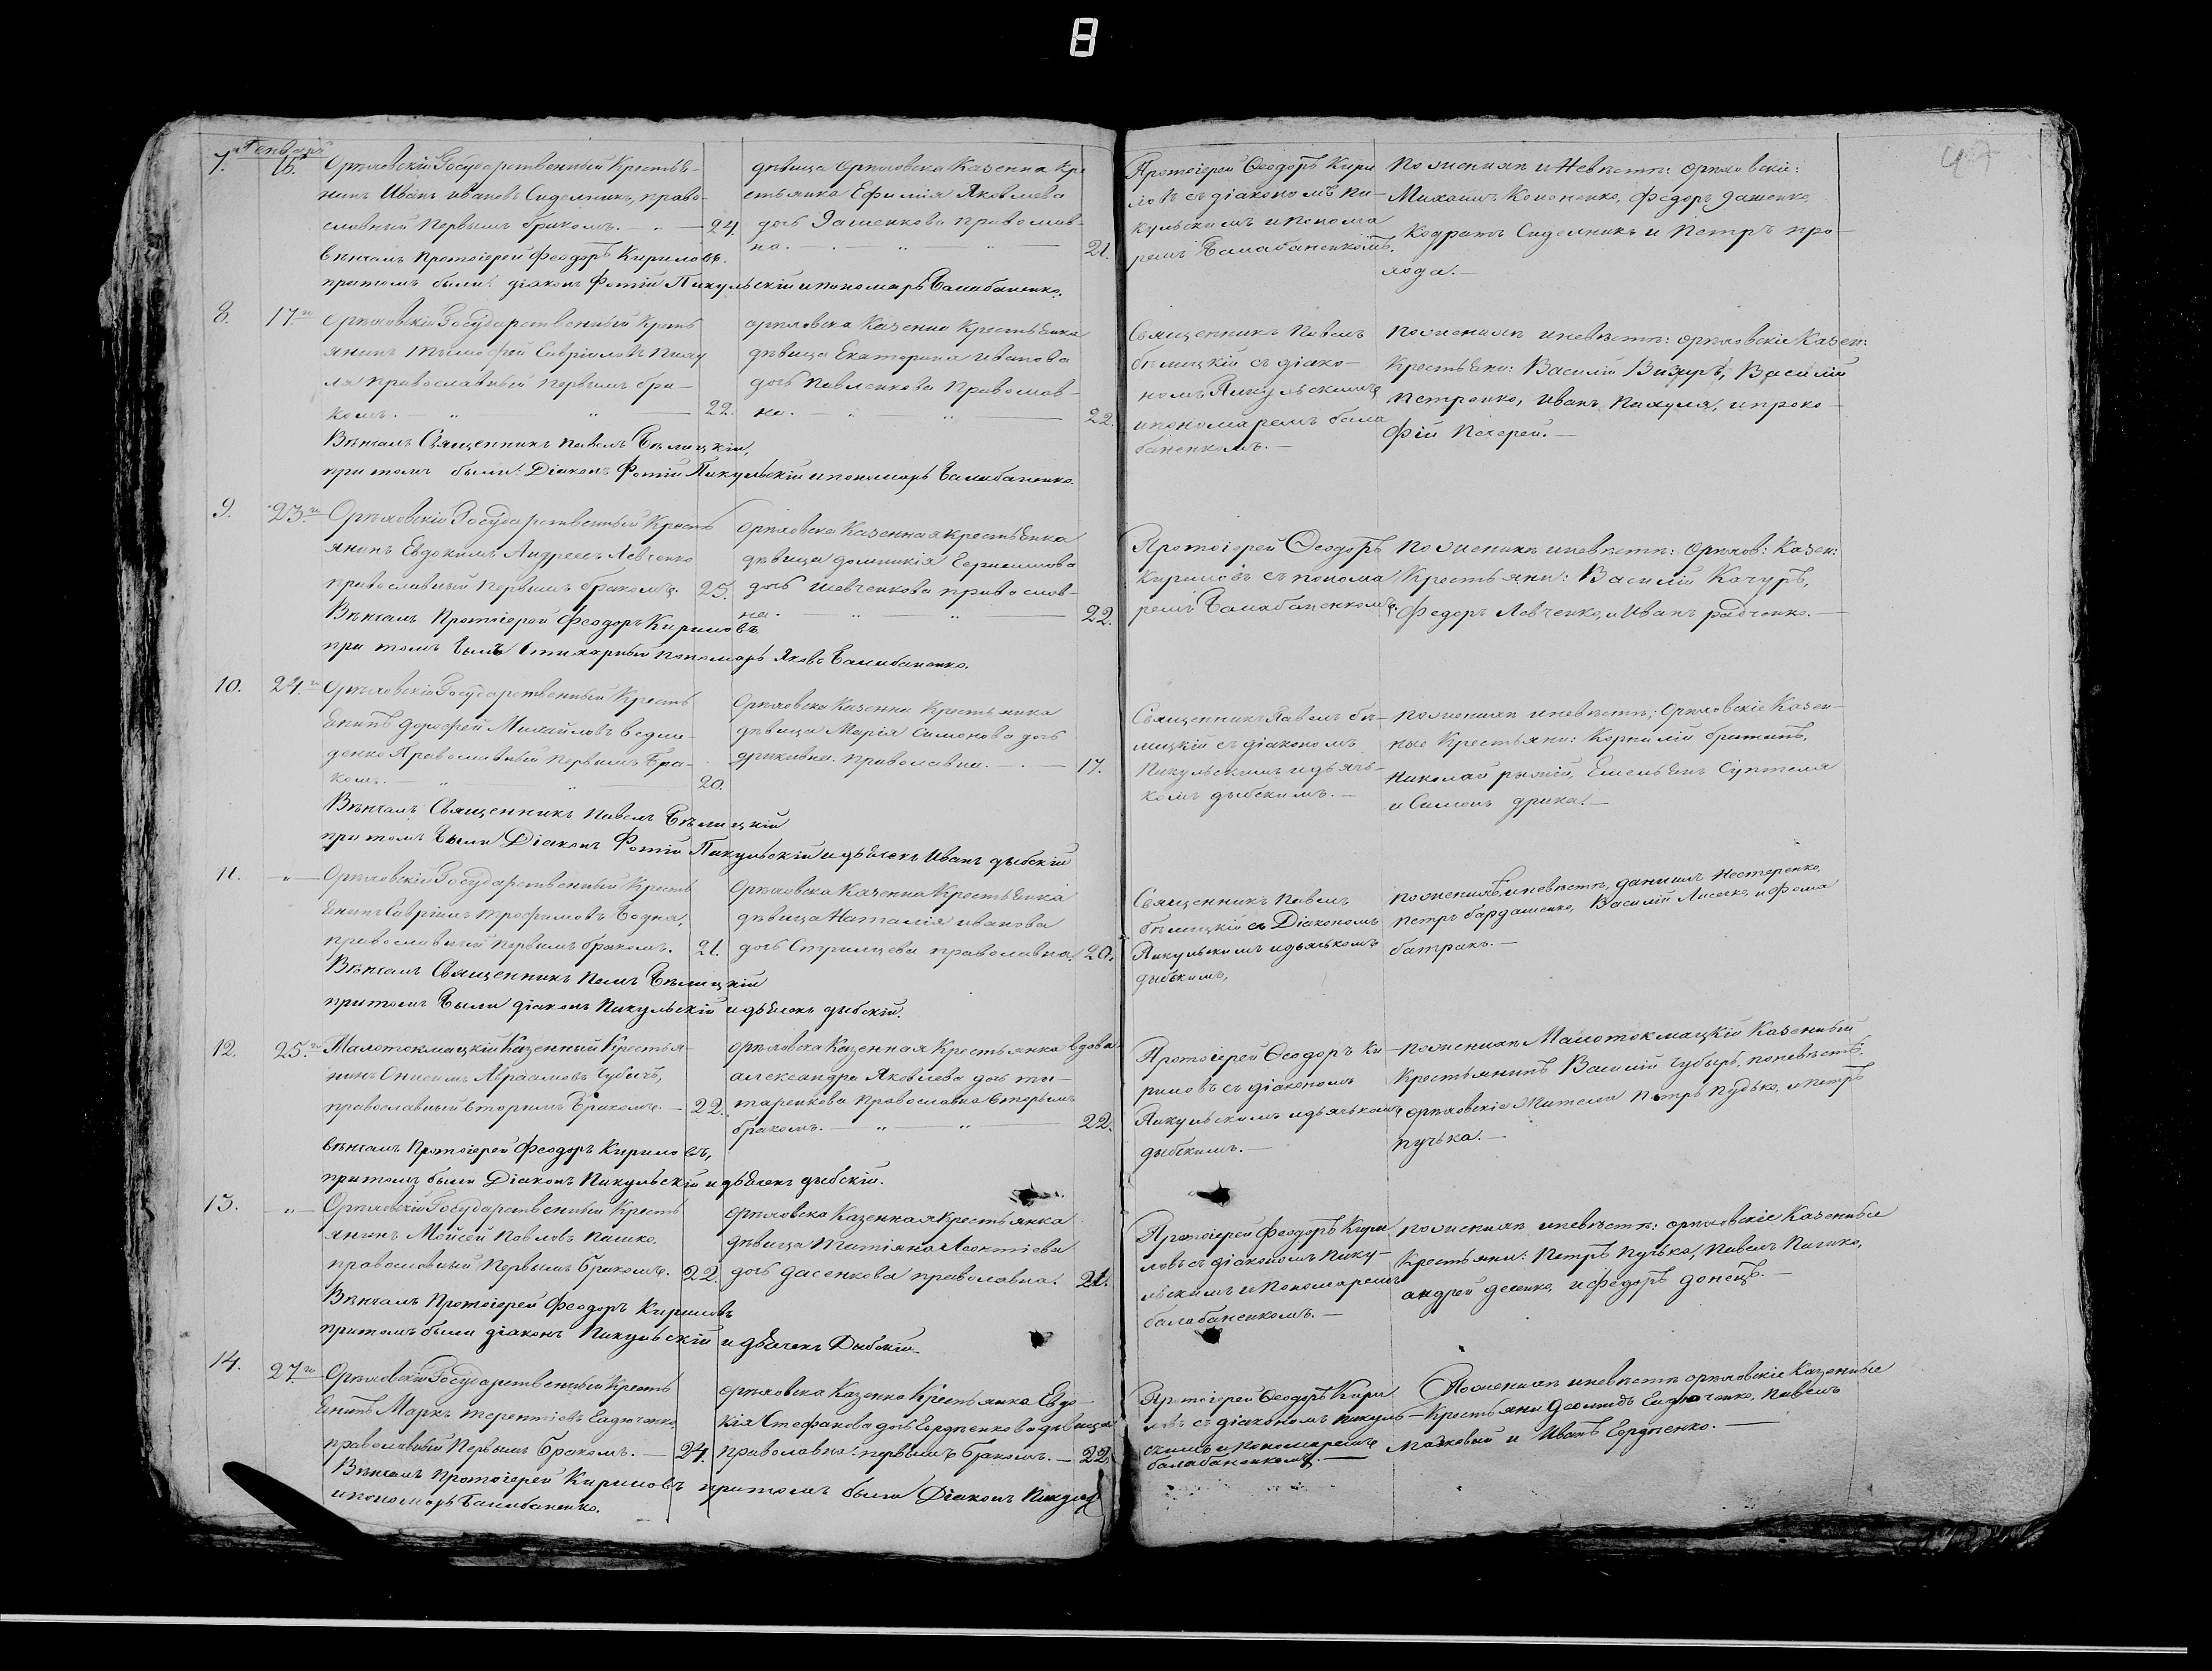 8
Генварь
7. 16. Орѣховскій Государственный Крестьѣ-
нинъ Иванъ ивановъ Сиделникъ, право-
славный первымъ бракомъ. — „ — 24.
Вѣнчалъ Протоіерей Феодоръ Кириловъ.
притомъ были: діаконъ Фотій Пикульскій и пономарь Балабаненко.
дѣвица орѣховска Казенна кре
стьянка Ефимія Яковлева
дочь Дашенкова православ-
на. „ „ „ 21.
Протоіерей Ѳеодоръ Кири
ловъ съ діакономъ Пи-
кульскимъ и понома
ремъ Балабаненкомъ.
По женихѣ и Невѣсте: орѣховскіе:
Михаилъ Кононенко, Федоръ дашенко,
Кодратъ Сиделникъ и Петръ про-
хода. —
8. 17.го орѣховскій Государственный Кресть
янинъ тымофей Савріловъ Пиху
ля православный первымъ бра-
комъ. — „ „ — 22.
Вѣнчалъ Священникъ Павелъ Бѣлицкій,
при томъ были: Діаконъ Фотій Пикульскій и пономарь Балабаненко.
орѣховска Казенна Крестьѣнка
дѣвица Екатерина иванова
дочь Павленкова Православ-
на. — „ „ — 22.
Священникъ Павелъ
бѣлицкій съ діако-
номъ Пикульскимъ
и пономаремъ бала
баненкомъ. —
По женихѣ и невѣсте: орѣховскіе Казен:
Крестьѣне: Василій Визиръ, Василій
Петренко, иванъ Пихуля, и проко-
фій Печерей. —
9. 23.го Орѣховскій Государственный Кресть
янинъ Евдокимъ Андреевъ Левченко
православный первымъ бракомъ. 25.
Вѣнчалъ Протоіерей Феодоръ Кириловъ
при томъ былъ Стихарный пономарь Яковъ Балабаненко.
орѣховска Казенная крестьѣнка
дѣвица домникія Герасимова
дочь Шевченкова православ-
на. „ — „ — 22.
Протоіерей Ѳеодоръ
Кириловъ съ понома
ремъ Балабаненкомъ.
По женихѣ и невѣсте: Орѣхов: Казен:
Крестьяни: Василій Качуръ,
Федоръ Левченко, и Иванъ радченко. —
10. 24.го Орѣховскій Государственный Кресть
ѣнинъ дорофей Михайловъ ведми-
денко Православный первымъ Бра-
комъ. — „ „ — 20.
Вѣнчалъ Священникъ Павелъ Бѣлицкій
при томъ Были Діаконъ Фотій Пикульскій и дьѣчекъ Иванъ дыбскій
Орѣховска Казенна Крестьянка
дѣвица Марія Симонова дочь
дрикивна. православна. — . — 17.
Священникъ Павелъ бѣ-
лицкій съ діакономъ
Пикульскимъ и дьяч-
комъ дыбскимъ. —
По женихѣ и невѣсте; Орѣховскіе Казен-
ные Крестьяне: Корнилій бритинъ,
Николай рыжій, Емельѣнъ Суптеля
и Симонъ дрика. —
11. „ — Орѣховскій Государственный Кресть
ѣнинъ Савріилъ трофимовъ Бодня,
православный первымъ бракомъ. 21.
Вѣнчалъ Священникъ Павелъ Бѣлицкій
при томъ Были діаконъ Пикульскій и дьѣчекъ дыбскій.
Орѣховска Казенна Крестьѣнка
дѣвица Наталія иванова
дочь Стрилцева православна. 20.
Священникъ Павелъ
бѣлицкій съ Діакономъ
Пикульскимъ и дьячькомъ
дыбскимъ,
по женихѣ, и невѣсте, данилъ Нестеренко,
петръ бардашенко, Василій Лисечко, и Фома
батракъ. —
12. 25.го Малотокмацкій Казенный Крестья-
нинъ Онисимъ Авраамовъ Чубыръ,
православный Вторымъ Бракомъ. — 22.
вѣнчалъ Протоіерей Феодоръ Кириловъ,
притомъ были Діаконъ Пикульскій и дьѣчекъ дыбскій.
орѣховска Казенная Крестьянка вдова
александра Яковлева дочь ты-
таренкова православна Вторымъ
бракомъ. — „ — „ — 22.
Протоіерей Ѳеодоръ Ки-
риловъ съ діакономъ
Пикульскимъ и дьячькомъ
дыбскимъ. —
по женихѣ Малотокмацкій Казенный
Крестьянинъ Василій Чубыръ, по невѣстѣ
орѣховскіе Жители Петръ Пудько, и Петръ
пучька. —
13. „ — Орѣховскій Государственный Кресть
янинъ Мойсей Павловъ Пашко.
православный Первымъ Бракомъ. 22.
Вѣнчалъ Протоіерей Феодоръ Кириловъ
притомъ были діаконъ Пикульскій и дьѣчекъ Дыбскій.
орѣховска Казенная Крестьянка
дѣвица Татіяна Леонтіева
дочь дасенкова православна. 21.
Протоіерей Феодоръ Кири
ловъ съ діакономъ Пику-
льскимъ и Пономаремъ
балабаненкомъ. —
по женихѣ и невѣсте: орѣховскіе Казенные
Крестьяни: Петръ Пучька, Павелъ Пашко,
андрей десенко, и федоръ донецъ. —
14. 27.го Орѣховскій Государственный Кресть
ѣнинъ Маркъ терентіевъ Евдюченко,
православный Первымъ Бракомъ. — 24.
Вѣнчалъ протоіерей Кириловъ притомъ были Діаконъ Пикульс
и пономарь Балабаненко.
орѣховска Казенно Крестьянка Евдо-
кія Стефанова дочь Гордѣенкова дѣвица
православна: первымъ бракомъ. — 22.
Протоіерей Ѳеодоръ Кири
ловъ съ діакономъ пикуль-
скимъ и пономаремъ
балабаненкомъ. —
По женихѣ и невѣсте орѣховскіе Казенные
Крестьяни Деомидъ Евдюченко, Павелъ
и Иванъ Гордѣенко. —